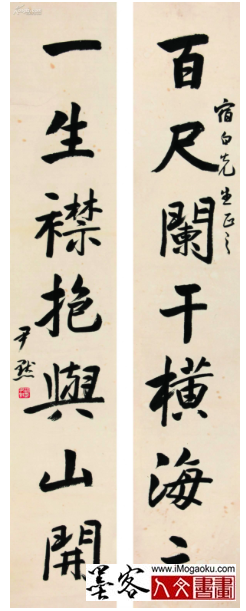 百尺闌干橫海
宿白先生正之
一生襟抱與山開
尹默
www.iMogaoku.com
墨客